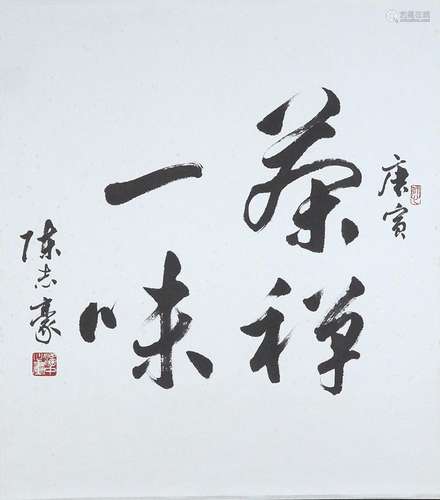 庚寅
茶禅
一味
陈志豪